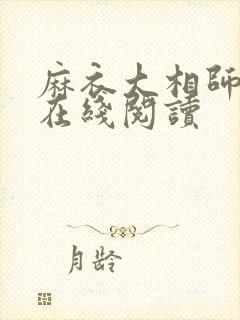 麻衣大相師
在綫閱讀
月齡